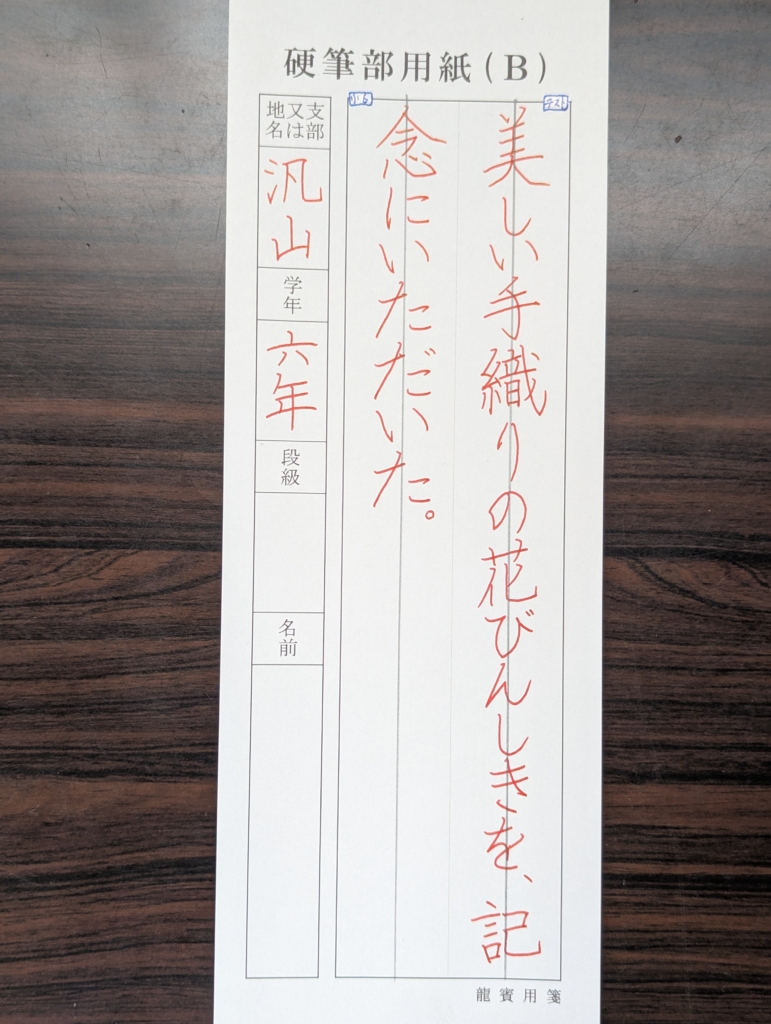 硬筆部用紙(B)
テスト
小6
美しい手織りの花びんしきを、記
念にいただいた。
支部又は地名
汎山
学年
六年
段級
名前
龍賓用箋